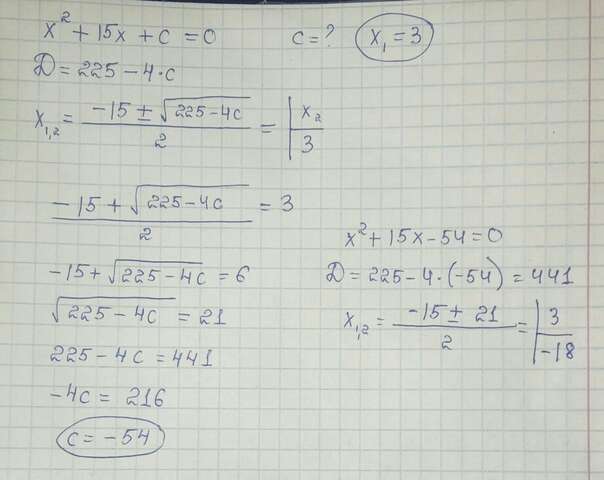 x² + 15x + c = 0 c = ? x₁ = 3
D = 225 – 4·c
x₁,₂ = (–15 ± √(225–4c))/2 = | x₂ / 3
(–15 + √(225–4c))/2 = 3
–15 + √(225–4c) = 6
√(225–4c) = 21
225 – 4c = 441
–4c = 216
c = –54
x² + 15x – 54 = 0
D = 225 – 4·(–54) = 441
x₁,₂ = (–15 ± 21)/2 = | 3 / –18